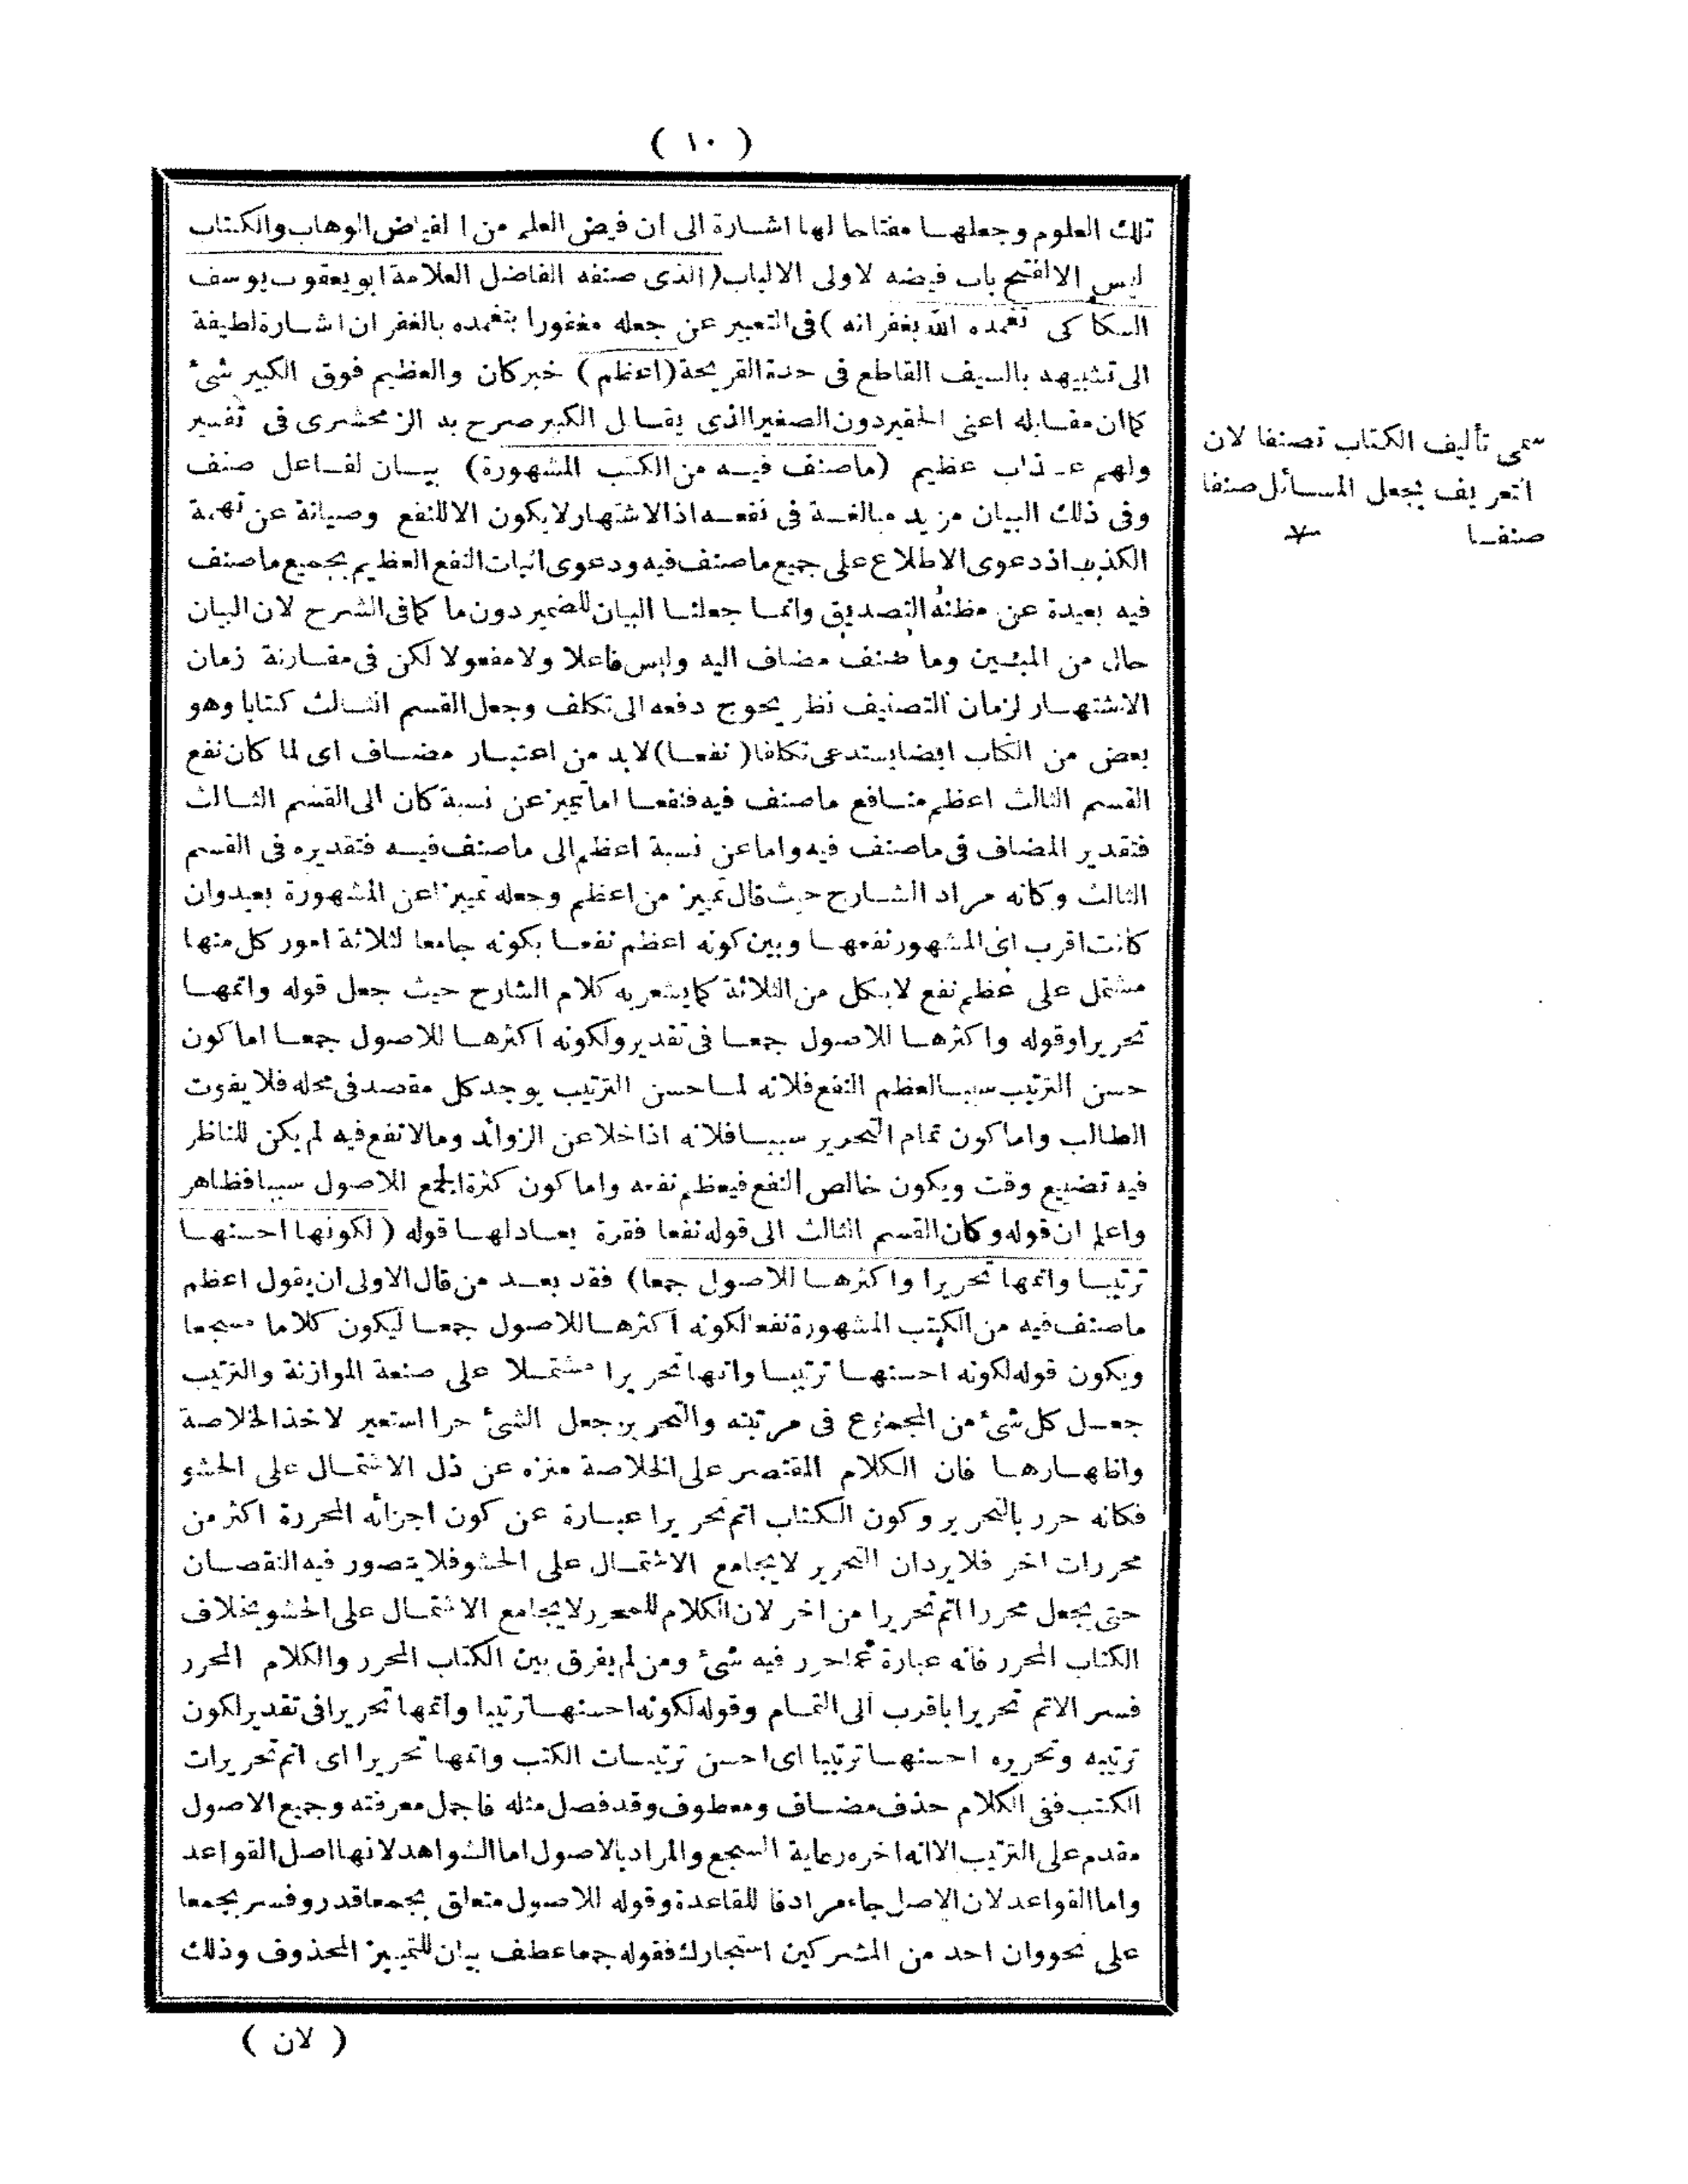 ( ١٠ )
تلك العلوم وجعلها مفتاحا لها اشارة الى ان فيض العلم من الفياض الوهاب والكتاب
ليس الا لفتح باب فيضه لاولى الالباب (الذى صنفه الفاضل العلامة ابو يعقوب يوسف
السكاكى تغمده الله بغفرانه ) فى التعبير عن جعله مغفورا بتغمده بالغفران اشارة لطيفة
الى تشبيهه بالسيف القاطع فى حدة القريحة (اعظم ) خبر كان والعظيم فوق الكبير شئ
كما ان مقابله اعنى الحقير دون الصغير الذى يقابل الكبير صرح به الزمخشرى فى تفسير
ولهم عذاب عظيم (ماصنف فيه من الكتب المشهورة) بيان لفاعل صنف
وفى ذلك البيان مزيد مبالغة فى نفعه اذ الاشتهار لا يكون الا للنفع وصيانة عن تهمة
الكذب اذ دعوى الاطلاع على جميع ماصنف فيه ودعوى اثبات النفع العظيم بجميع ماصنف
فيه بعيدة عن مظنة التصديق وانما جعلنا البيان للضمير دون ما كما فى الشرح لان البيان
حال من المبين وما صنف مضاف اليه وليس فاعلا ولا مفعولا لكن فى مقارنة زمان
الاشتهار لزمان التصنيف نظر يحوج دفعه الى تكلف وجعل القسم الثالث كتابا وهو
بعض من الكتاب ايضا يستدعى تكلفا ( نفعا) لابد من اعتبار مضاف اى لما كان نفع
القسم الثالث اعظم منافع ماصنف فيه فنفعا اما تمييز عن نسبة كان الى القسم الثالث
فتقدير المضاف فى ماصنف فيه واما عن نسبة اعظم الى ماصنف فيه فتقديره فى القسم
الثالث وكانه مراد الشارح حيث قال تمييز من اعظم وجعله تمييزا عن المشهورة بعيد وان
كانت اقرب اى المشهور نفعها وبين كونه اعظم نفعا بكونه جامعا لثلاثة امور كل منها
مشتمل على عظم نفع لا بكل من الثلاثة كما يشعر به كلام الشارح حيث جعل قوله واتمها
تحريرا وقوله واكثرها للاصول جمعا فى تقدير ولكونه اكثرها للاصول جمعا اما كون
حسن الترتيب سببا لعظم النفع فلانه لما حسن الترتيب يوجد كل مقصد فى محله فلا يفوت
الطالب واما كون تمام التحرير سببا فلانه اذا خلا عن الزوائد وما لا نفع فيه لم يكن للناظر
فيه تضييع وقت ويكون خالص النفع فيعظم نفعه واما كون كثرة الجمع للاصول سببا فظاهر
واعلم ان قوله وكان القسم الثالث الى قوله نفعا فقرة يعادلها قوله ( لكونها احسنها
ترتيبا واتمها تحريرا واكثرها للاصول جمعا) فقد بعد من قال الاولى ان يقول اعظم
ماصنف فيه من الكتب المشهورة نفعا لكونه اكثرها للاصول جمعا ليكون كلاما مسجعا
ويكون قوله لكونه احسنها ترتيبا واتمها تحريرا مشتملا على صنعة الموازنة والترتيب
جعل كل شئ من المجموع فى مرتبته والتحرير جعل الشئ حرا استعير لاخذ الخلاصة
واظهارها فان الكلام المقتصر على الخلاصة منزه عن ذل الاشتمال على الحشو
فكانه حرر بالتحرير وكون الكتاب اتم تحريرا عبارة عن كون اجزائه المحررة اكثر من
محررات اخر فلا يرد ان التحرير لا يجامع الاشتمال على الحشو فلا يتصور فيه النقصان
حتى يجعل محررا اتم تحريرا من اخر لان الكلام المحرر لا يجامع الاشتمال على الحشو بخلاف
الكتاب المحرر فانه عبارة عما حرر فيه شئ ومن لم يفرق بين الكتاب المحرر والكلام المحرر
فسر الاتم تحريرا باقرب الى التمام وقوله لكونه احسنها ترتيبا واتمها تحريرا فى تقدير لكون
ترتيبه وتحريره احسنها ترتيبا اى احسن ترتيبات الكتب واتمها تحريرا اى اتم تحريرات
الكتب ففى الكلام حذف مضاف ومعطوف وقد فصل مثله فاجمل معرفته وجميع الاصول
مقدم على الترتيب الا انه اخره رعاية السجع والمراد بالاصول اما الشواهد لانها اصل القواعد
واما القواعد لان الاصل جاء مرادفا للقاعدة وقوله للاصول متعلق بجمعا قدر وفسر بجمعا
على نحو وان احد من المشركين استجارك فقوله جمعا عطف بيان للتمييز المحذوف وذلك
( لان )
سمى تأليف الكتاب تصنفا لان
التعريف يجعل المسائل صنفا
صنفا